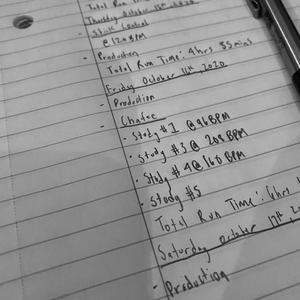 Total Run Time
Thursday October 15th, 2020
- Stick Control
@ 120 BPM
- Production
Total Run Time: 4hrs 35mins
Friday October 16th, 2020
- Production
- Chaffee
- Study #1 @ 96BPM
- Study #3 @ 208 BPM
- Study #4 @ 160 BPM
- Study #5
Total Run Time: 6hrs
Saturday October 17th, 20
- Production